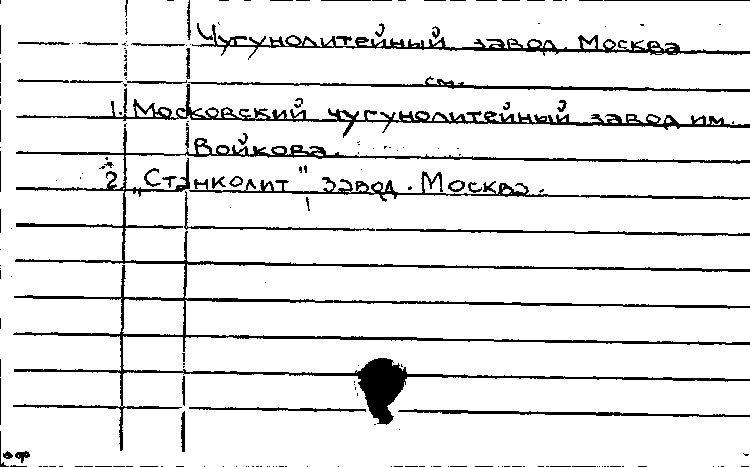 Чугунолитейный завод. Москва
см.
1. Московский чугунолитейный завод им.
Войкова.
2. „Станколит" завод. Москва.